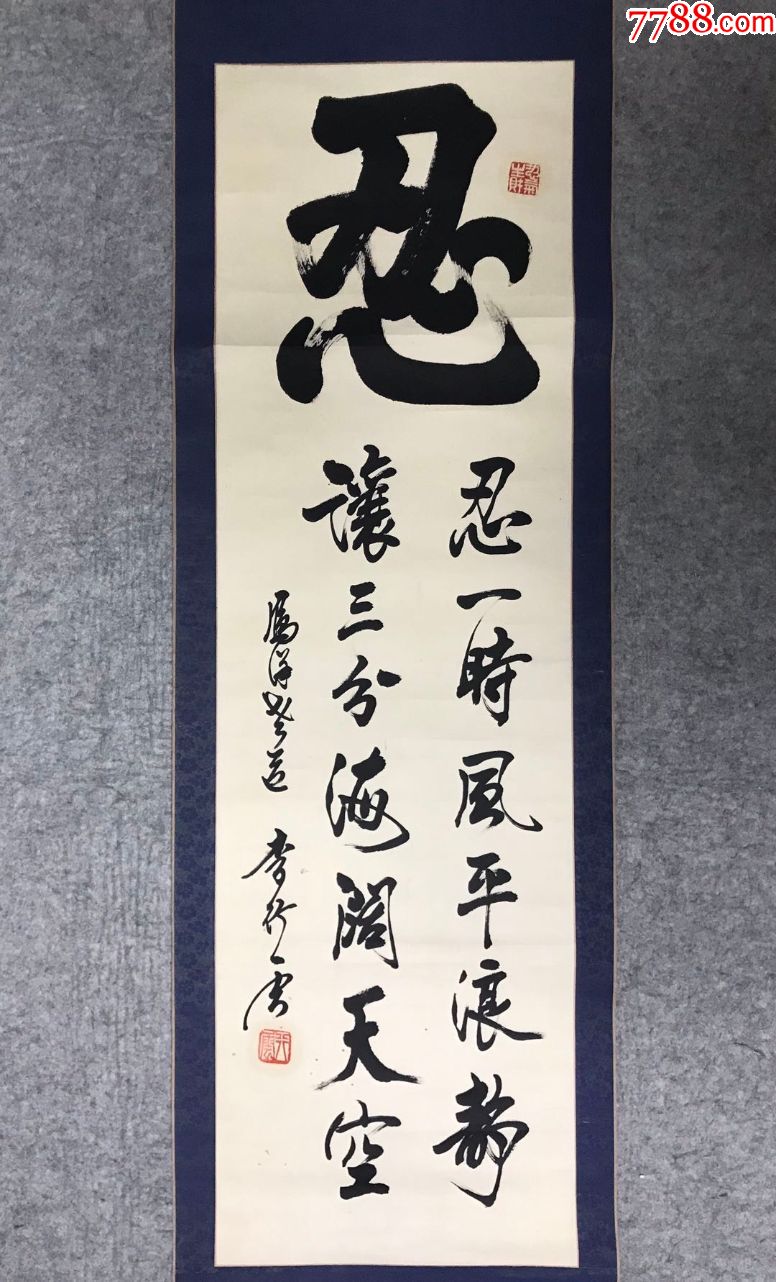 7788.com
忍
忍一時風平浪静
讓三分海闊天空
李